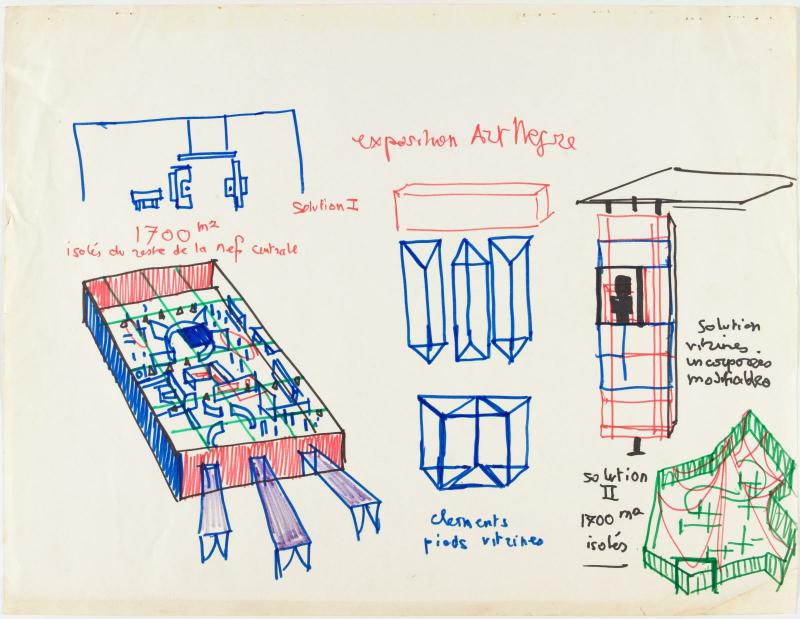 exposition Art Negre
Solution I
1700 m2
isolés du reste de la nef centrale
solution
vitrines
incorporées
modifiables
elements
pieds vitrines
solution
II
1700 m2
isolés